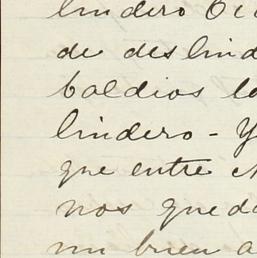 lindero
de deslind
baldios
lindero - Y
que entre
nos qued
un buen a